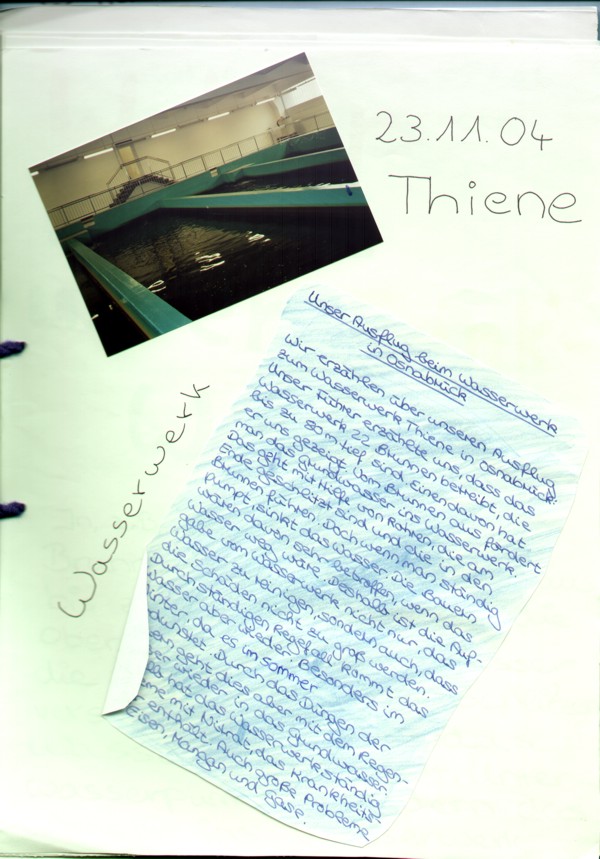 23.11.04
Thiene
Wasserwerk
Unser Ausflug beim Wasserwerk
in Osnabrück
Wir erzählen über unseren Ausflug
zum Wasserwerk Thiene in Osnabrück.
Unser Führer erzählte uns, dass das
Wasserwerk 22 Brunnen betreibt, die
bis zu 50 m tief sind. Einen davon hat
er uns gezeigt. Vom Brunnen aus fördert
man das Grundwasser ins Wasserwerk.
Das geht mit Hilfe von Rohren, die am
Ende geschlitzt sind und die in den
Brunnen führen. Doch wenn man ständig
pumpt, sinkt das Wasser. Die Bauern
wären davon sehr betroffen, wenn das
Wasser weg wäre. Deshalb ist die Auf-
gabe vom Wasserwerk nicht nur, das
Wasser zu reinigen, sondern auch, dass
die Schäden nicht zu groß werden.
Durch ständigen Regenfall kommt das
Wasser aber wieder. Besonders im
Winter, da es im Sommer
dunstet. Durch das Düngen der
geht dies aber mit dem Regen-
wieder in das Grundwasser.
hat das Wasserwerk ständig
me mit Nitrat, das Krankheits-
enthält. Auch große Probleme
Eisen, Mangan und Gase.